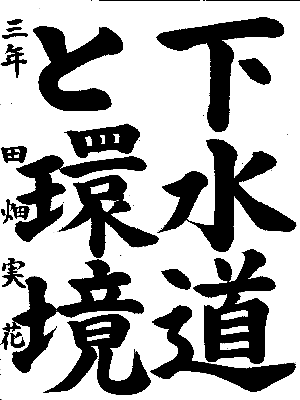 下水道
と環境
三年 田畑実花